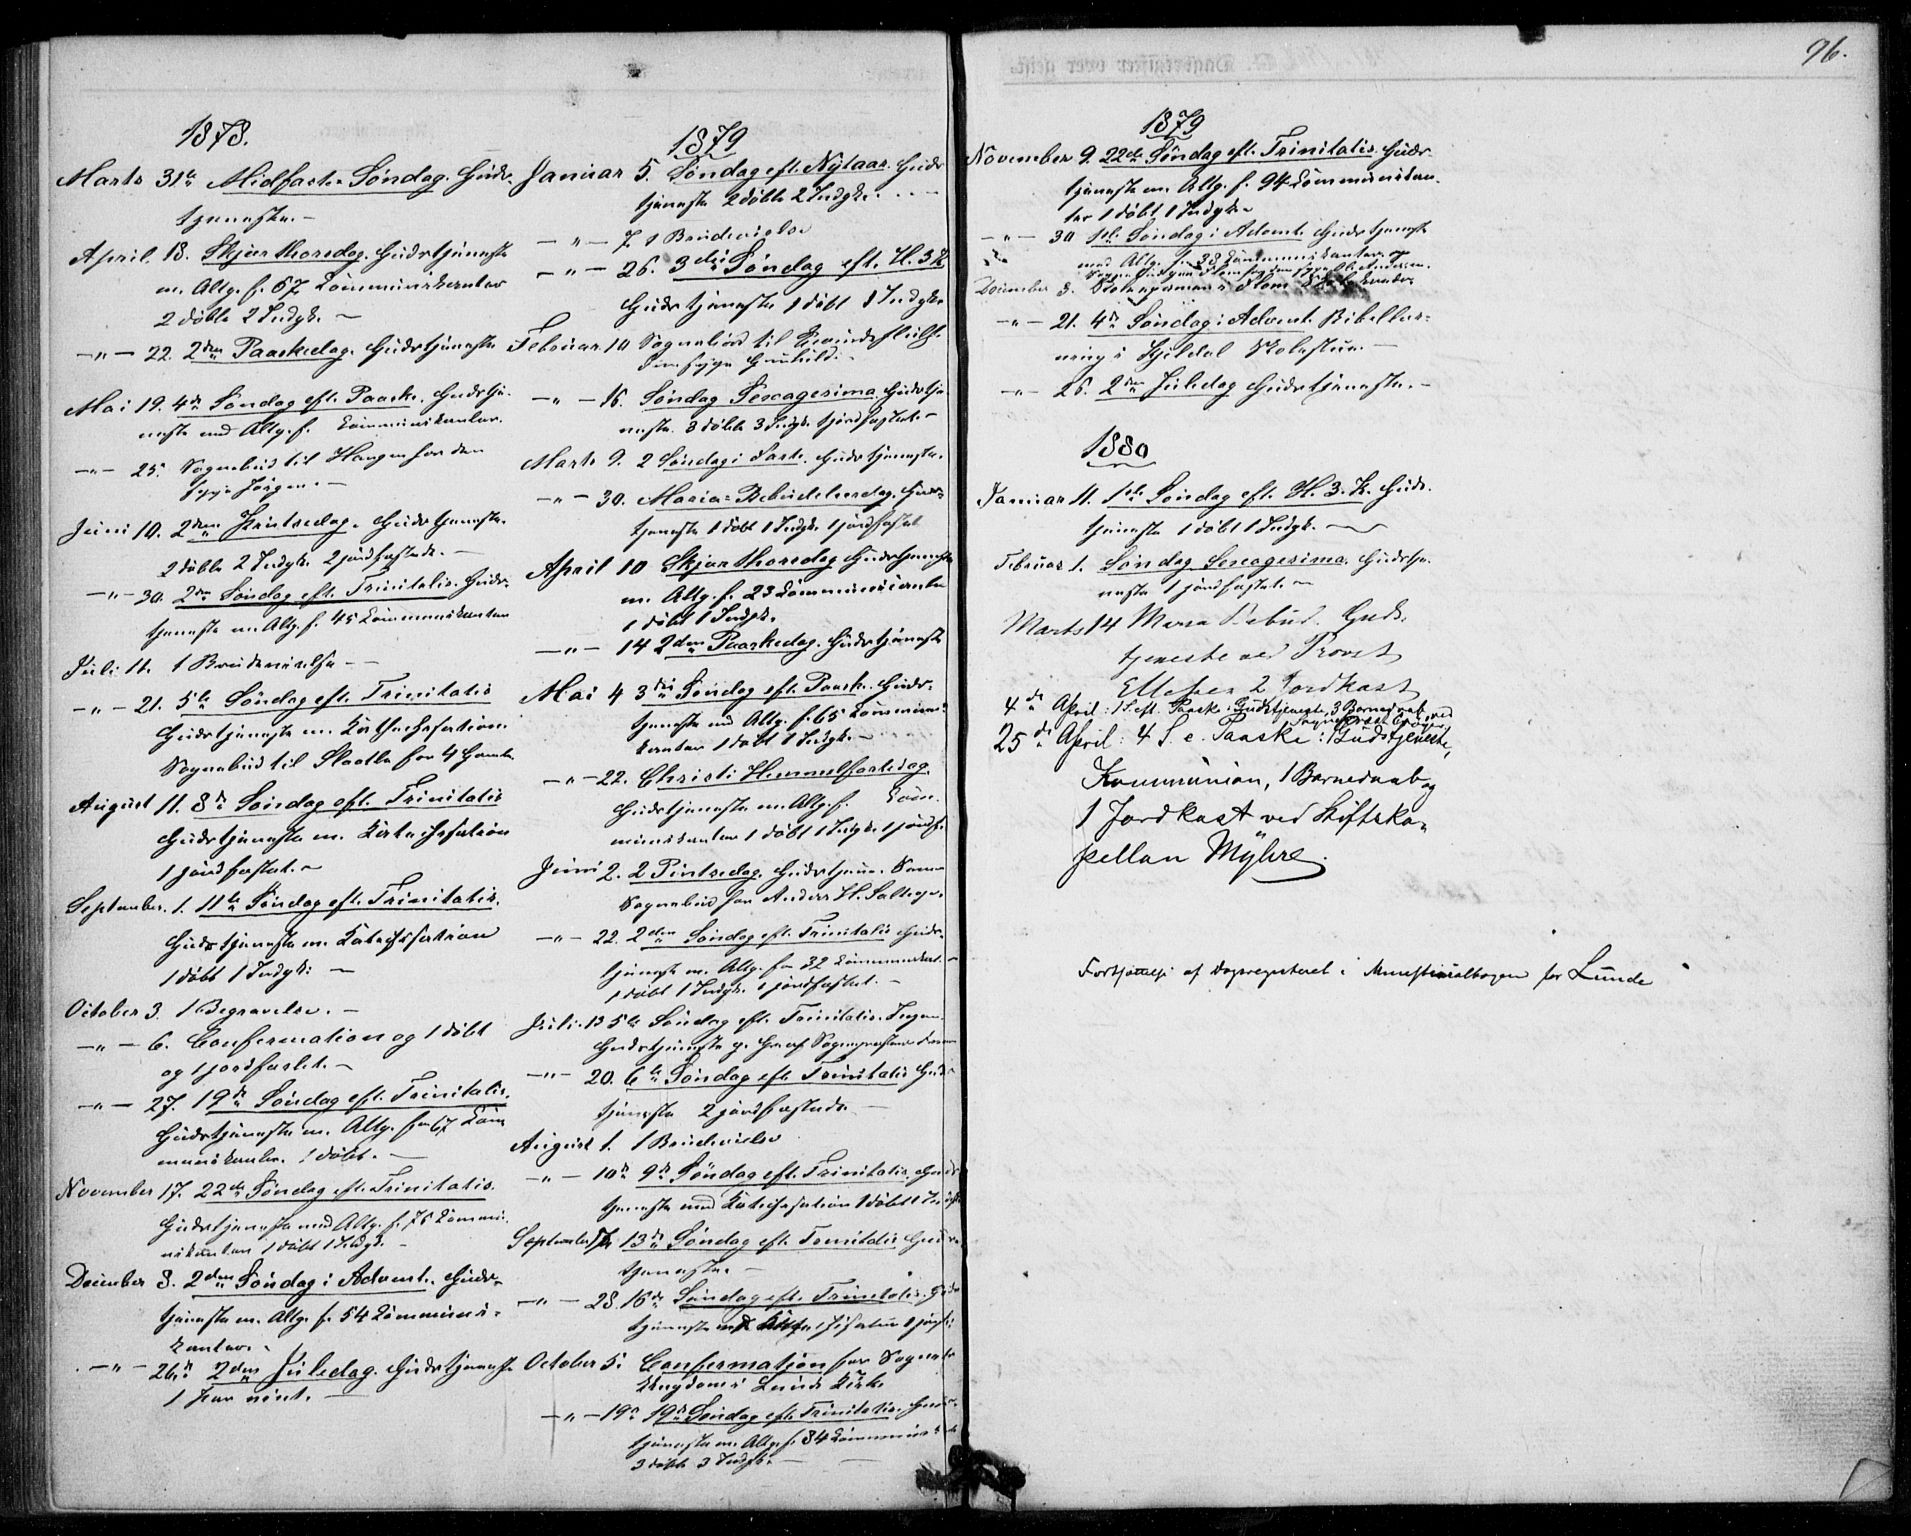 1878.
Marts 31te Midfaste Søndag. Guds-
tjeneste. -
April 18. Skjærthorsdag. Gudstjeneste
m. Altg. f. 67 Kommunikanter
2 døbte 2 Indgk. -
-"- 22. 2den Paaskedag. Gudstjeneste
Mai 19. 4de Søndag eft. Paaske. Gudstje-
neste med Altg. f. Kommunikanter.
-"- 25. Sognebud til Haugen for den
syge Jørgen. -
Juni 10. 2den Pintsedag. Gudstjeneste.
2 døbte 2 Indgk. 2 jordfæstede. -
-"- 30. 2den Søndag eft. Trinitatis. Guds-
tjeneste m. Altg. f. 45 Kommunikanter
Juli 11. 1 Brudevielse -
-"- 21. 5te Søndag eft. Trinitatis
Gudstjeneste m. Kathechisation
Sognebud til for 4 Gamle
August 11. 8de Søndag eft. Trinitatis
Gudstjeneste m. Katechisation
1 jordfæstet. -
September. 1. 11te Søndag eft. Trinitatis.
Gudstjeneste m. Katechisation
1 døbt 1 Indgk: -
October 3. 1 Begravelse. -
-"- 6. Confirmation og 1 døbt
og 1 jordfæstet. -
-"- 27. 19de Søndag eft. Trinitatis.
Gudstjeneste m. Altg. for 67 Kom-
munikanter. 1 døbt. -
November 17. 22de Søndag eft. Trinitatis.
Gudstjeneste med Altg. f. 76 Kommu-
nikanter 1 døbt 1 Indgk. -
December 8. 2den Søndag i Advent. Guds-
tjeneste m. Altg. f. 54 Kommuni-
kanter. -
-"- 26de 2den Juledag. Gudstjeneste
1
1879
Januar 5. Søndag eft. Nytaar. Guds-
tjeneste 2 døbte 2 Indgk.
-"- 7. 1 Brudevielse
-"- 26. 3die Søndag eft. H. 3 K
Gudstjeneste 1 døbt 1 Indgk.
Februar 10 Sognebud til
den syge Gunhild. -
-"- 16. Søndag Sexagesima Gudstje-
neste. 3 døbte 3 Indgk. 1 jordfæstet. -
Marts 9. 2 Søndag i Faste. Gudstjeneste.
-"- 30. Mariæ Bebudelsesdag. Guds-
tjeneste 1 døbt 1 Indgk. 1 jordfæstet
April 10 Skjærthorsdag Gudstjeneste
m. Altg. f. 23 Kommunikanter
1 døbt 1 Indgk.
-"- 14 2den Paaskedag. Gudstjeneste
Mai 4 3die Søndag eft. Paaske. Guds-
tjeneste med Altg. f. 65 Kommuni-
kanter 1 døbt 1 Indgk. -
-"- 22. Christi Himmelfartsdag.
Gudstjeneste m. Altg. f. Kom-
munikanter 1 døbt 1 Indgk. 1 jordf.
Juni 2. 2 Pintsedag. Gudstjene.
Sognebud for Anders H.
-"- 22. 2den Søndag eft. Trinitatis Guds-
tjeneste m. Altg. for 32 Kommunikant.
1 døbt 1 Indgk. 1 jordfæstet. -
Juli. 13 5te Søndag eft. Trinitatis. Ingen
Gudstjeneste p. Gr. af Sognepræstens
-"- 20. 6te Søndag eft. Trinitatis Guds-
tjeneste 2 jordfæstede. -
August 1. 1 Brudevielse
-"- 10de 9de Søndag eft. Trinitatis. Guds
tjeneste med Katechisation 1 døbt 1
September 13de Søndag eft. Trinitatis Guds-
tjeneste. -
-"- 28. 16de Søndag eft. Trinitatis. Guds
tjeneste 1
October 5. Confirmation for Sognets
Ungdom i Lunde Kirke
-"- 19de 19de Søndag eft. Trinitatis. Guds-
tjeneste m. Altg. f. 34 Kommunik
3 døbte 3 Indgk. -
96.
1879
November 9. 22de Søndag eft. Trinitatis. Guds-
tjeneste m. Altg. f. 94 Kommunikan-
ter 1 døbt 1 Indgk.
-"- 30 1ste Søndag i Advent. Gudstjeneste
med Altg. f. 28 Kommunikanter
December 3. i Flom
-"- 21. 4de Søndag i Advent. Bibellæs-
ning i Kjeldal Skolestue. -
-"- 26. 2den Juledag Gudstjeneste. -
1880
Januar 11. 1ste Søndag eft. H. 3. K. Guds-
tjeneste 1 døbt 1 Indgk. -
Februar 1. Søndag Sexagesima. Gudstje-
neste 1 jordfæstet. -
Marts 14 Maria Bebud. Guds-
tjeneste ved Provst
Ellefsen 2 Jordkast
4de April: 1 S. eft. Paaske: Gudstjeneste, 3 Barnedaab ved
Sognepræst
25de April: 4 S. e. Paaske: Gudstjeneste,
Kommunion, 1 Barnedaab og
1 Jordkast ved Stiftska-
pellan Myhre.
Fortsættelse af Dagsregisteret i Ministerialbogen for Lunde